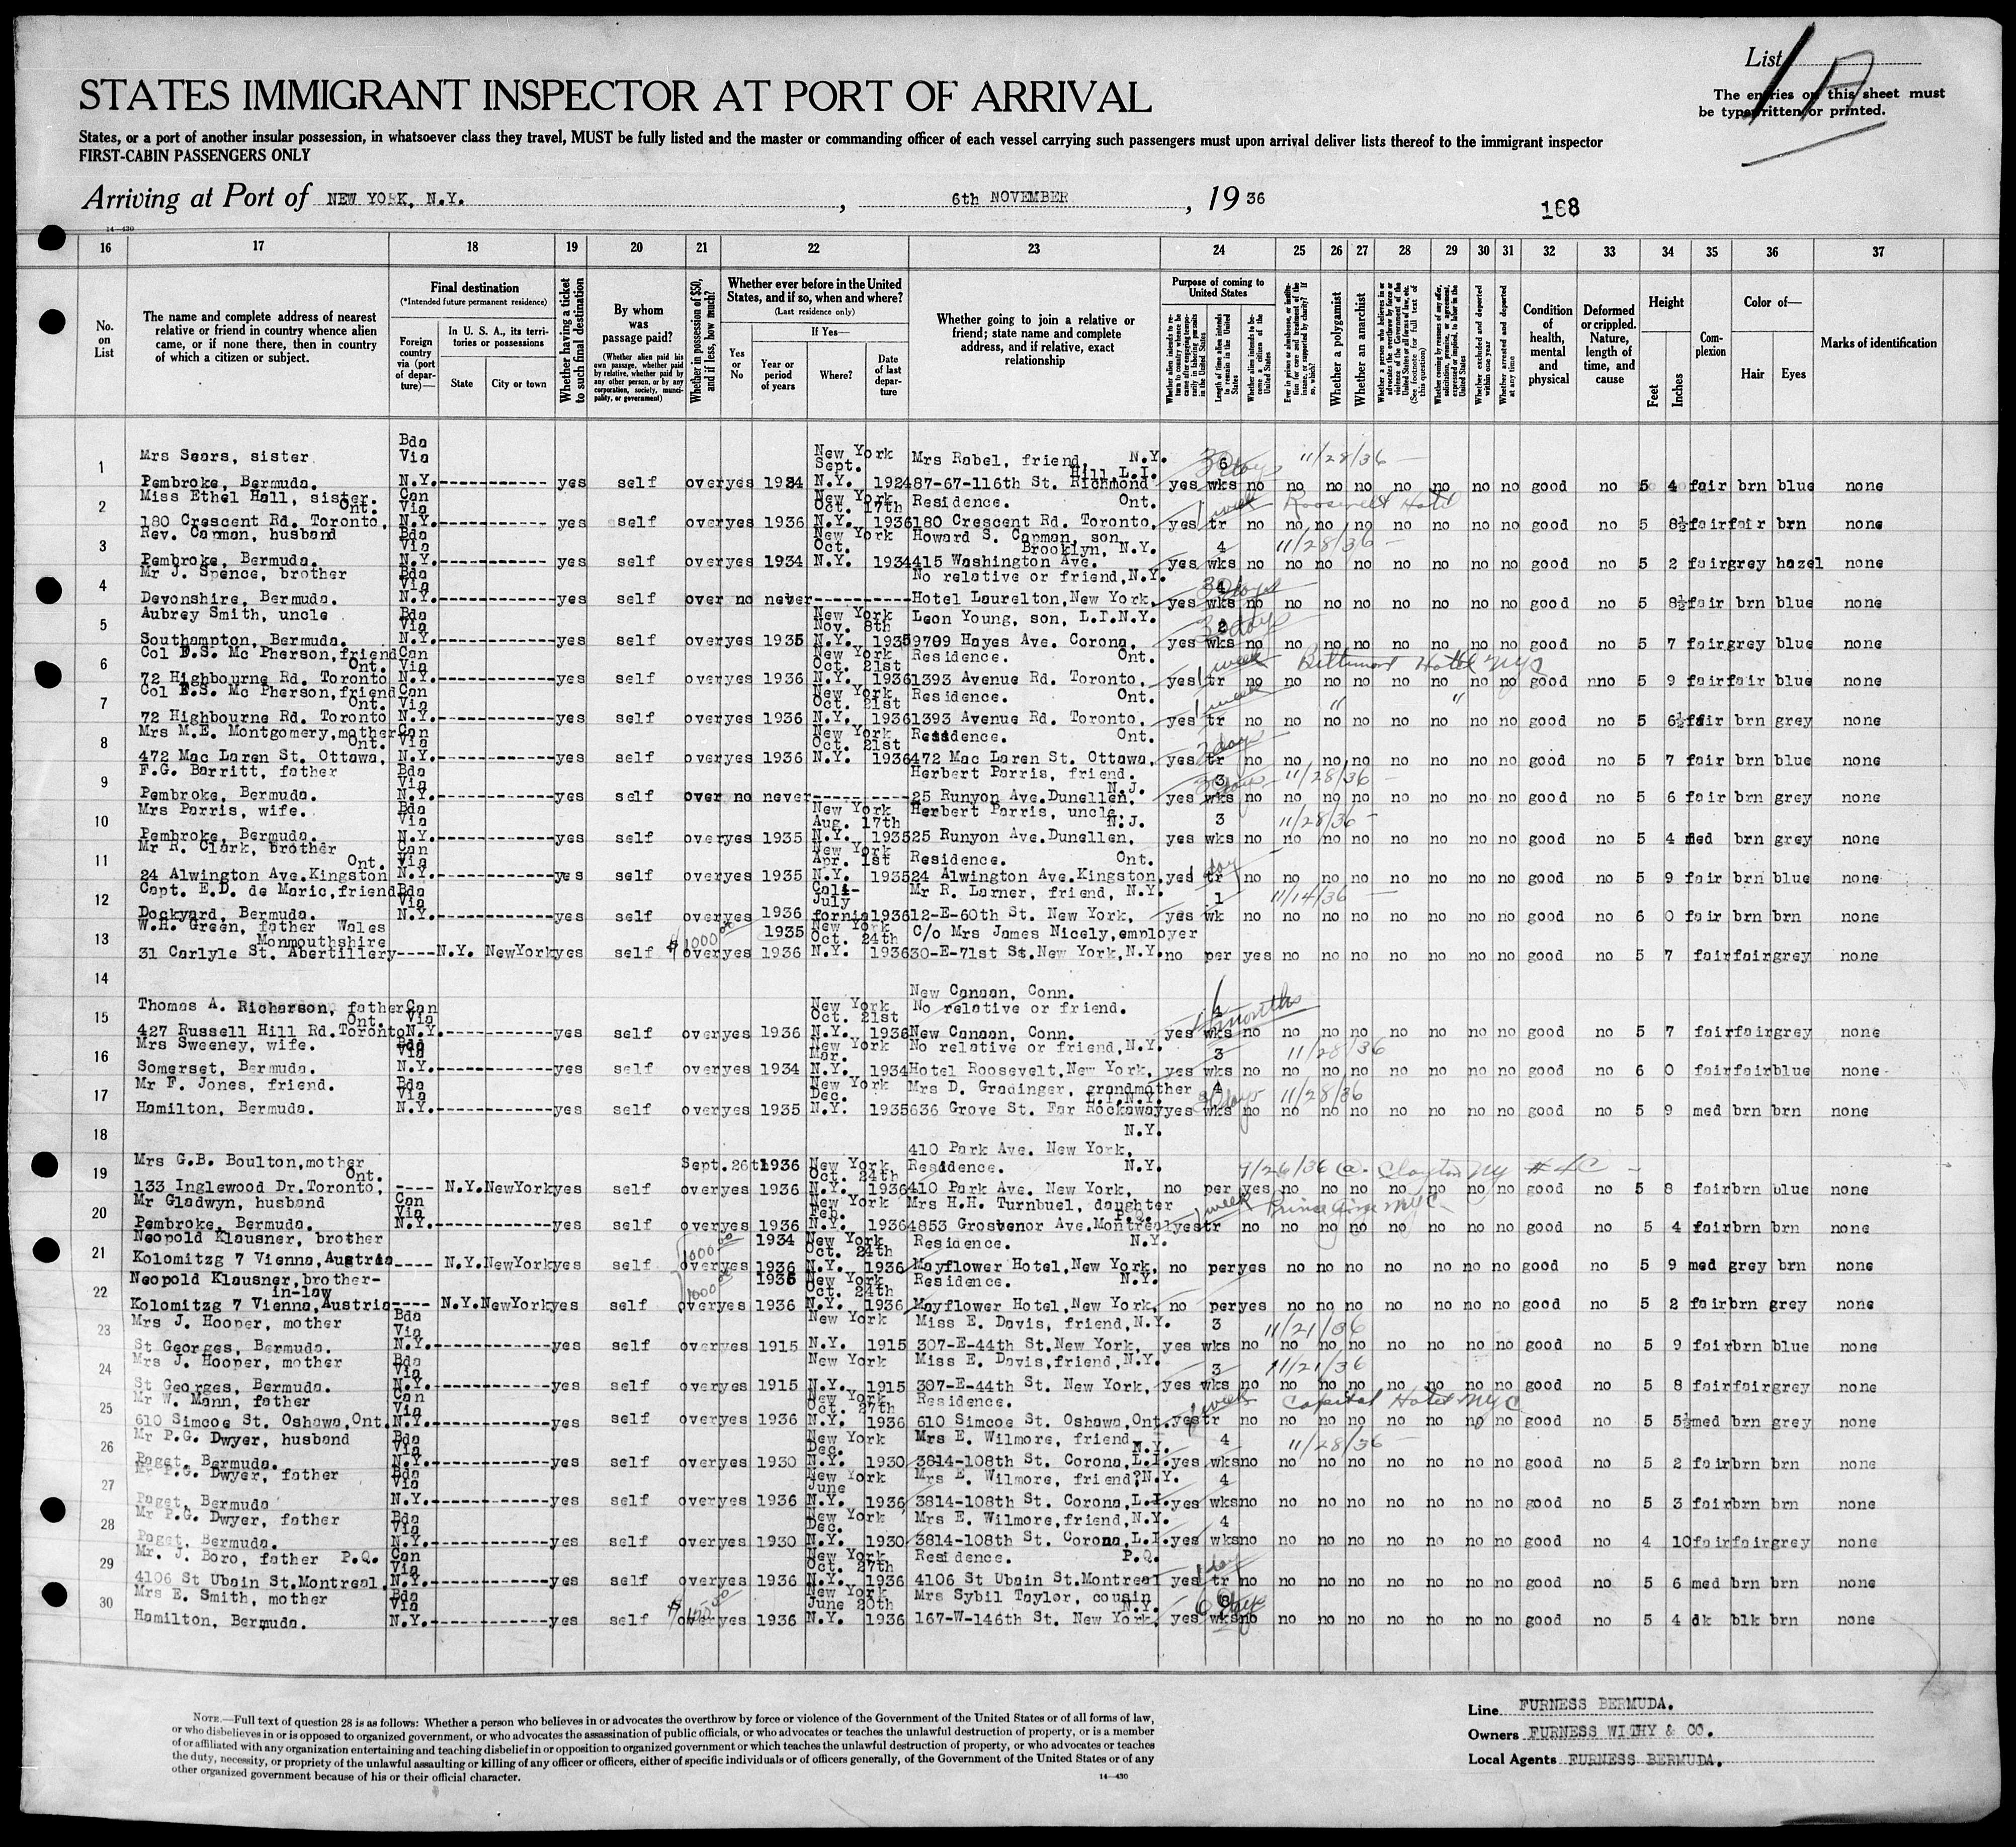 List 1A
STATES IMMIGRANT INSPECTOR AT PORT OF ARRIVAL
The entries on this sheet must
be typewritten or printed.
States, or a port of another insular possession, in whatsoever class they travel, MUST be fully listed and the master or commanding officer of each vessel carrying such passengers must upon arrival deliver lists thereof to the immigrant inspector
FIRST-CABIN PASSENGERS ONLY
Arriving at Port of NEW YORK, N.Y. , 6th NOVEMBER , 19 36
168
14—430
16 17 18 19 20 21 22 23 24 25 26 27 28 29 30 31 32 33 34 35 36 37
No. on List
The name and complete address of nearest relative or friend in country whence alien came, or if none there, then in country of which a citizen or subject.
Final destination
(*Intended future permanent residence)
Foreign country via (port of departure)—
In U. S. A., its territories or possessions
State
City or town
Whether having a ticket to such final destination
By whom was passage paid?
(Whether alien paid his own passage, whether paid by relative, whether paid by any other person, or by any corporation, society, municipality, or government)
Whether in possession of $50, and if less, how much?
Whether ever before in the United States, and if so, when and where?
(Last residence only)
If Yes—
Yes or No
Year or period of years
Where?
Date of last departure
Whether going to join a relative or friend; state name and complete address, and if relative, exact relationship
Purpose of coming to United States
Length of time alien intends to remain in the United States
Whether alien intends to become a citizen of the United States
Whether a polygamist
Whether an anarchist
Whether excluded and deported within one year
Whether arrested and deported at any time
Condition of health, mental and physical
Deformed or crippled. Nature, length of time, and cause
Height
Feet
Inches
Complexion
Color of—
Hair
Eyes
Marks of identification
Bda
1 Mrs Sears, sister Via New York Sept. Mrs Rabel, friend, N.Y. Hill L.I. 6 30 days 11/28/36 —
Pembroke, Bermuda. N.Y.----------- yes self over yes 1924 N.Y. 1924 87-67-116th St. Richmond yes wks no no no no no no no no good no 5 4 fair brn blue none
2 Miss Ethel Hall, sister. Ont. Can Via New York Oct. 17th Residence. Ont. 1 week Roosevelt Hotel
180 Crescent Rd. Toronto, N.Y.----------- yes self over yes 1936 N.Y. 1936 180 Crescent Rd. Toronto, yes tr no no no no no no no no good no 5 8½ fair fair brn none
3 Rev. Capman, husband Bda Via New York Oct. Howard S. Capman, son Brooklyn, N.Y. 4 11/28/36 —
Pembroke, Bermuda. N.Y.----------- yes self over yes 1934 N.Y. 1934 415 Washington Ave. yes wks no no no no no no no no good no 5 2 fair grey hazel none
4 Mr J. Spence, brother Bda Via No relative or friend, N.Y. 30 days
Devonshire, Bermuda. N.Y.----------- yes self over no never----------- Hotel Laurelton, New York, yes wks no no no no no no no no good no 5 8½ fair brn blue none
5 Aubrey Smith, uncle Bda Via New York Nov. 8th Leon Young, son, L.I.N.Y. 2 30 days
Southampton, Bermuda. N.Y.----------- yes self over yes 1935 N.Y. 1935 9709 Hayes Ave. Corona, yes wks no no no no no no no no good no 5 7 fair grey blue none
6 Col E.S. Mc Pherson, friend Ont. Can Via New York Oct. 21st Residence. Ont. 1 week Biltmore Hotel NYC
72 Highbourne Rd. Toronto N.Y.----------- yes self over yes 1936 N.Y. 1936 1393 Avenue Rd. Toronto, yes tr no no no no no no no no good nno 5 9 fair fair blue none
7 Col E.S. Mc Pherson, friend Ont. Can Via New York Oct. 21st Residence. Ont. 1 week " "
72 Highbourne Rd. Toronto N.Y.----------- yes self over yes 1936 N.Y. 1936 1393 Avenue Rd. Toronto, yes tr no no no no no no no no good no 5 6½ fair brn grey none
8 Mrs M.E. Montgomery, mother Ont. Can Via New York Oct. 21st Residence. Ont. 2 days
472 Mac Laren St. Ottawa, N.Y.----------- yes self over yes 1936 N.Y. 1936 472 Mac Laren St. Ottawa, yes tr no no no no no no no no good no 5 7 fair brn blue none
9 F.G. Barritt, father Bda Via Herbert Parris, friend. N.J. 3 11/28/36 —
Pembroke, Bermuda. N.Y.----------- yes self over no never----------- 25 Runyon Ave. Dunellen, yes wks no no no no no no no no good no 5 6 fair brn grey none
10 Mrs Parris, wife. Bda Via New York Aug. 17th Herbert Parris, uncle. N.J. 3 11/28/36 —
Pembroke, Bermuda. N.Y.----------- yes self over yes 1935 N.Y. 1935 25 Runyon Ave. Dunellen, yes wks no no no no no no no no good no 5 4 med brn grey none
11 Mr R. Clark, brother Ont. Can Via New York Apr. 1st Residence. Ont. 1 day
24 Alwington Ave. Kingston N.Y.----------- yes self over yes 1935 N.Y. 1935 24 Alwington Ave. Kingston, yes tr no no no no no no no no good no 5 9 fair brn blue none
12 Capt. E.D. de Maric, friend Bda Via Cali- July Mr R. Larner, friend, N.Y. 1 11/14/36 —
Dockyard, Bermuda. N.Y.----------- yes self over yes 1936 fornia 1936 12-E-60th St. New York, yes wk no no no no no no no no good no 6 0 fair brn brn none
13 W.H. Green, father Wales Monmouthshire $1000 00 1935 New York Oct. 24th C/o Mrs James Nicely, employer
31 Carlyle St. Abertillery---- N.Y. NewYork yes self over yes 1936 N.Y. 1936 30-E-71st St. New York, N.Y. no per yes no no no no no no no good no 5 7 fair fair grey none
14
New Canaan, Conn.
15 Thomas A. Richarson, father Ont. Can Via New York Oct. 21st No relative or friend. months
427 Russell Hill Rd. Toronto N.Y.----------- yes self over yes 1936 N.Y. 1936 New Canaan, Conn. yes wks no no no no no no no no good no 5 7 fair fair grey none
16 Mrs Sweeney, wife. Bda Via New York Mar. No relative or friend, N.Y. 3 11/28/36
Somerset, Bermuda. N.Y.----------- yes self over yes 1934 N.Y. 1934 Hotel Roosevelt, New York, yes wks no no no no no no no no good no 6 0 fair fair blue none
17 Mr F. Jones, friend. Bda Via New York Dec. Mrs D. Gradinger, grandmother L.I.N.Y. 4 30 days 11/28/36
Hamilton, Bermuda. N.Y.----------- yes self over yes 1935 N.Y. 1935 636 Grove St. Far Rockaway yes wks no no no no no no no no good no 5 9 med brn brn none
18 N.Y.
410 Park Ave. New York,
19 Mrs G.B. Boulton, mother Ont. Sept. 26th 1936 New York Oct. 24th Residence. N.Y. 9/26/36 @ Clayton NY #4C —
133 Inglewood Dr. Toronto, ---- N.Y. NewYork yes self over yes 1936 N.Y. 1936 410 Park Ave. New York, no per yes no no no no no no no good no 5 8 fair brn blue none
20 Mr Gladwyn, husband Can Via New York Feb. Mrs H.H. Turnbuel, daughter P.Q. 1 week Prince George NYC
Pembroke, Bermuda. N.Y.----------- yes self over yes 1936 N.Y. 1936 4853 Grosvenor Ave. Montreal yes tr no no no no no no no no good no 5 4 fair brn brn none
21 Neopold Klausner, brother 1000 00 1934 New York Oct. 24th Residence. N.Y.
Kolomitzg 7 Vienna, Austria---- N.Y. NewYork yes self over yes 1936 N.Y. 1936 Mayflower Hotel, New York, no per yes no no no no no no no good no 5 9 med grey brn none
22 Neopold Klausner, brother-in-law 1000 00 1935 New York Oct. 24th Residence. N.Y.
Kolomitzg 7 Vienna, Austria---- N.Y. NewYork yes self over yes 1936 N.Y. 1936 Mayflower Hotel, New York, no per yes no no no no no no no good no 5 2 fair brn grey none
23 Mrs J. Hooper, mother Bda Via New York Miss E. Davis, friend, N.Y. 3 11/21/36
St Georges, Bermuda. N.Y.----------- yes self over yes 1915 N.Y. 1915 307-E-44th St. New York, yes wks no no no no no no no no good no 5 9 fair brn blue none
24 Mrs J. Hooper, mother Bda Via New York Miss E. Davis, friend, N.Y. 3 11/21/36
St Georges, Bermuda. N.Y.----------- yes self over yes 1915 N.Y. 1915 307-E-44th St. New York, yes wks no no no no no no no no good no 5 8 fair fair grey none
25 Mr W. Mann, father Can Via New York Oct. 27th Residence. 1 week Capital Hotel NYC
610 Simcoe St. Oshawa, Ont. N.Y.----------- yes self over yes 1936 N.Y. 1936 610 Simcoe St. Oshawa, Ont. yes tr no no no no no no no no good no 5 5½ med brn grey none
26 Mr P.G. Dwyer, husband Bda Via New York Dec. Mrs E. Wilmore, friend, N.Y. 4 11/28/36 —
Paget, Bermuda. N.Y.----------- yes self over yes 1930 N.Y. 1930 3814-108th St. Corona, L.I. yes wks no no no no no no no no good no 5 2 fair brn brn none
27 Mr P.G. Dwyer, father Bda Via New York June Mrs E. Wilmore, friend, N.Y. 4
Paget, Bermuda N.Y.----------- yes self over yes 1936 N.Y. 1936 3814-108th St. Corona, L.I. yes wks no no no no no no no no good no 5 3 fair brn brn none
28 Mr P.G. Dwyer, father Bda Via New York Dec. Mrs E. Wilmore, friend, N.Y. 4
Paget, Bermuda. N.Y.----------- yes self over yes 1930 N.Y. 1930 3814-108th St. Corona, L.I. yes wks no no no no no no no no good no 4 10 fair fair grey none
29 Mr. J. Boro, father P.Q. Can Via New York Oct. 27th Residence. P.Q. 1 day
4106 St Ubain St. Montreal, N.Y.----------- yes self over yes 1936 N.Y. 1936 4106 St Ubain St. Montreal yes tr no no no no no no no no good no 5 6 med brn brn none
30 Mrs E. Smith, mother Bda Via New York June 20th Mrs Sybil Taylor, cousin N.Y. 8
Hamilton, Bermuda. N.Y.----------- yes self over yes 1936 N.Y. 1936 167-W-146th St. New York, yes wks no no no no no no no no good no 5 4 dk blk brn none
NOTE.—Full text of question 28 is as follows: Whether a person who believes in or advocates the overthrow by force or violence of the Government of the United States or of all forms of law,
or who disbelieves in or is opposed to organized government, or who advocates the assassination of public officials, or who advocates or teaches the unlawful destruction of property, or is a member
of or affiliated with any organization entertaining and teaching disbelief in or opposition to organized government or which teaches the unlawful destruction of property, or who advocates or teaches
the duty, necessity, or propriety of the unlawful assaulting or killing of any officer or officers, either of specific individuals or of officers generally, of the Government of the United States or of any
other organized government because of his or their official character.
14—430
Line FURNESS BERMUDA.
Owners FURNESS WITHY & CO.
Local Agents FURNESS BERMUDA.